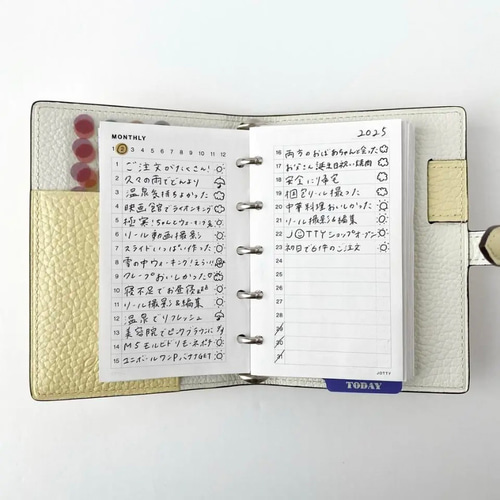 MONTHLY
1 2 3 4 5 6 7 8 9 10 11 12
1 ご注文がたくさん!
2 久々の雨でどんより
3 温泉気持ちよかった
4 映画館でライオンキング
5 極実!ちゃんとウォーキング
6 リール動画撮影
7 スライドいっぱい作った
8 雪の中ウォーキング!えらい!
9 クレープおいしかった
10 寝不足でお昼寝zzz
11 リール撮影&編集
12 温泉でリフレッシュ
13 美容院でピンクブラウンに
14 M5 モルビド リモーネ
15 ユニボールワンP GET
2025
16 両方のおばあちゃんと会った
17 お父さん誕生日祝い焼肉
18 安全に帰宅
19 個リール撮った
20 中華料理おいしかった
21 リール撮影&編集
22 JOTTYショップオープン
23 初日で6件のご注文
24
25
26
27
28
29
30
31
JOTTY
TODAY